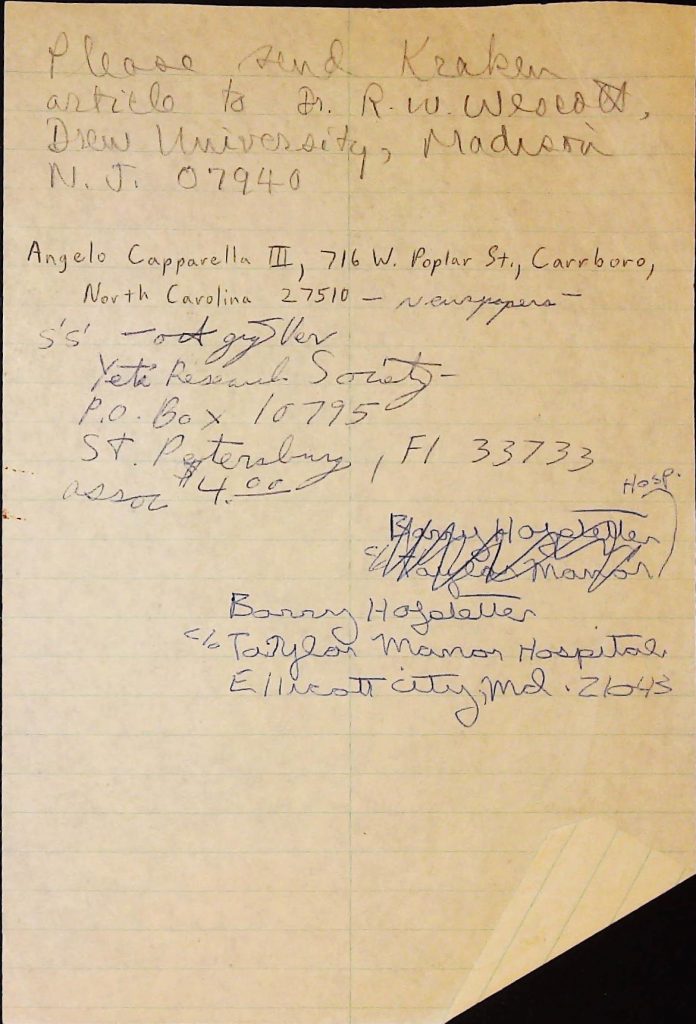 Please send Kraken
article to Dr. R. W. Wescott,
Drew University, Madison
N. J. 07940
Angelo Capparella III, 716 W. Poplar St., Carrboro,
North Carolina 27510 – newspapers –
Yeti Research Society –
P.O. Box 10795
St. Petersburg, Fl 33733
assoc $4.00
Hosp.
Barry Hofstetter
c/o Taylor Manor
Barry Hofstetter
c/o Taylor Manor Hospital
Ellicott City, Md. 21043